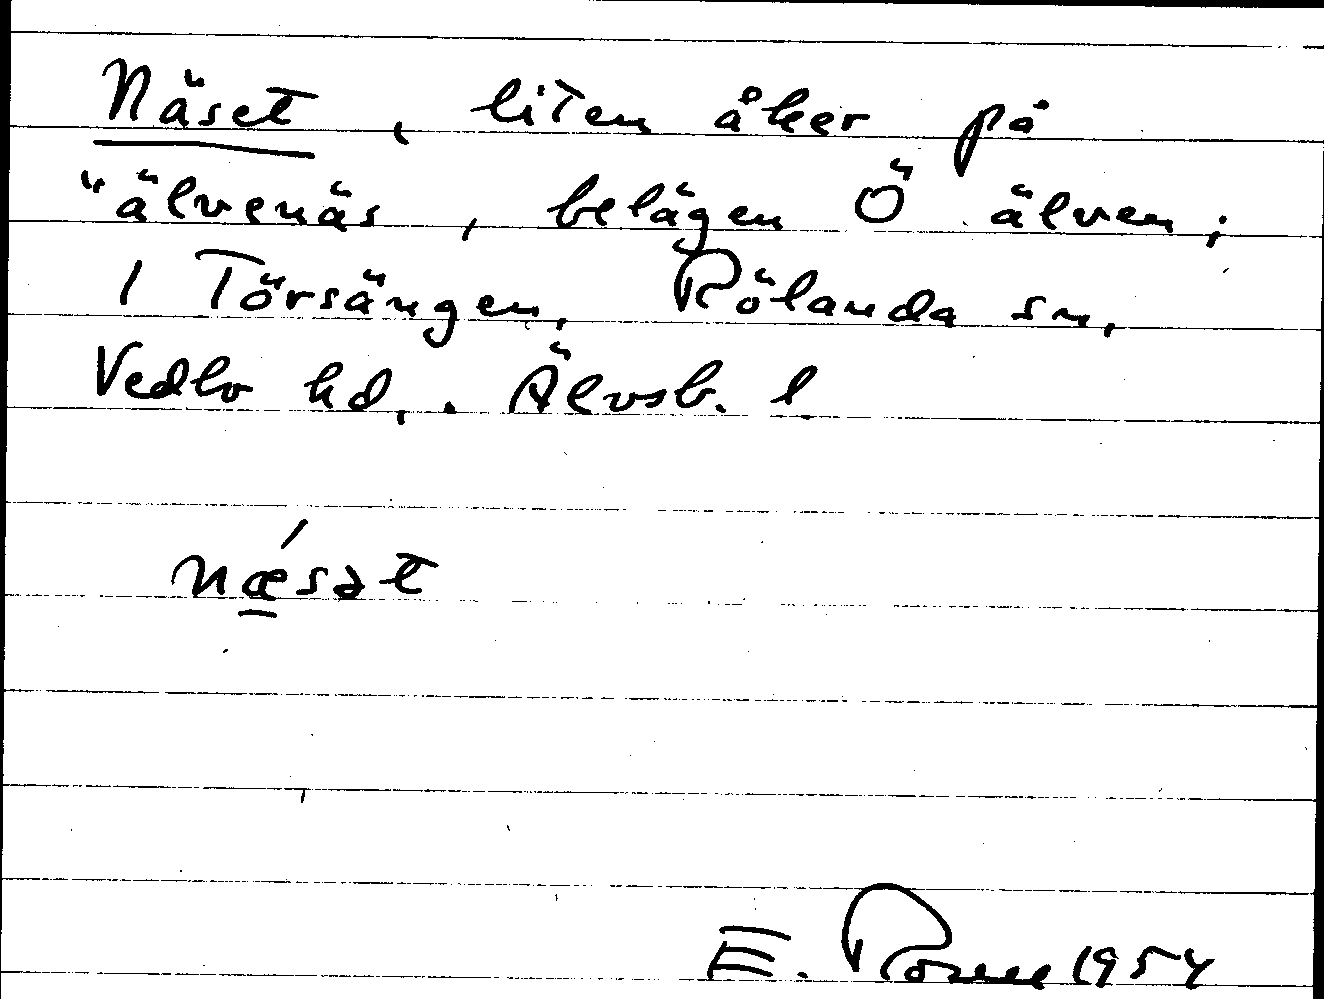 Näset, liten åker på
"älvenäs, belägen Ö älven;
I Törsängen, Rölanda sn,
Vedbo hd, . Älvsb. l
næ´sət
E. 1954